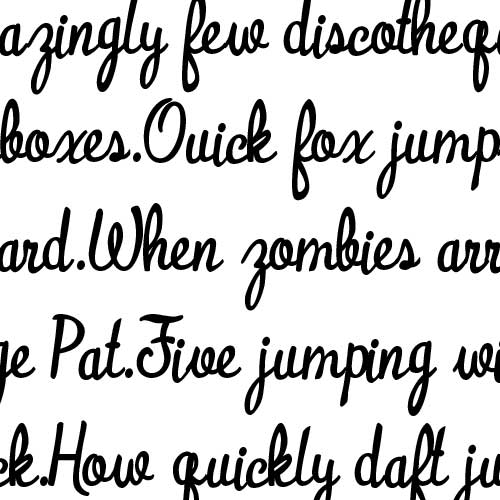 azingly few discotheq
boxes.Quick fox jump
ard.When zombies arr
ge Pat.Five jumping wi
ck.How quickly daft ju